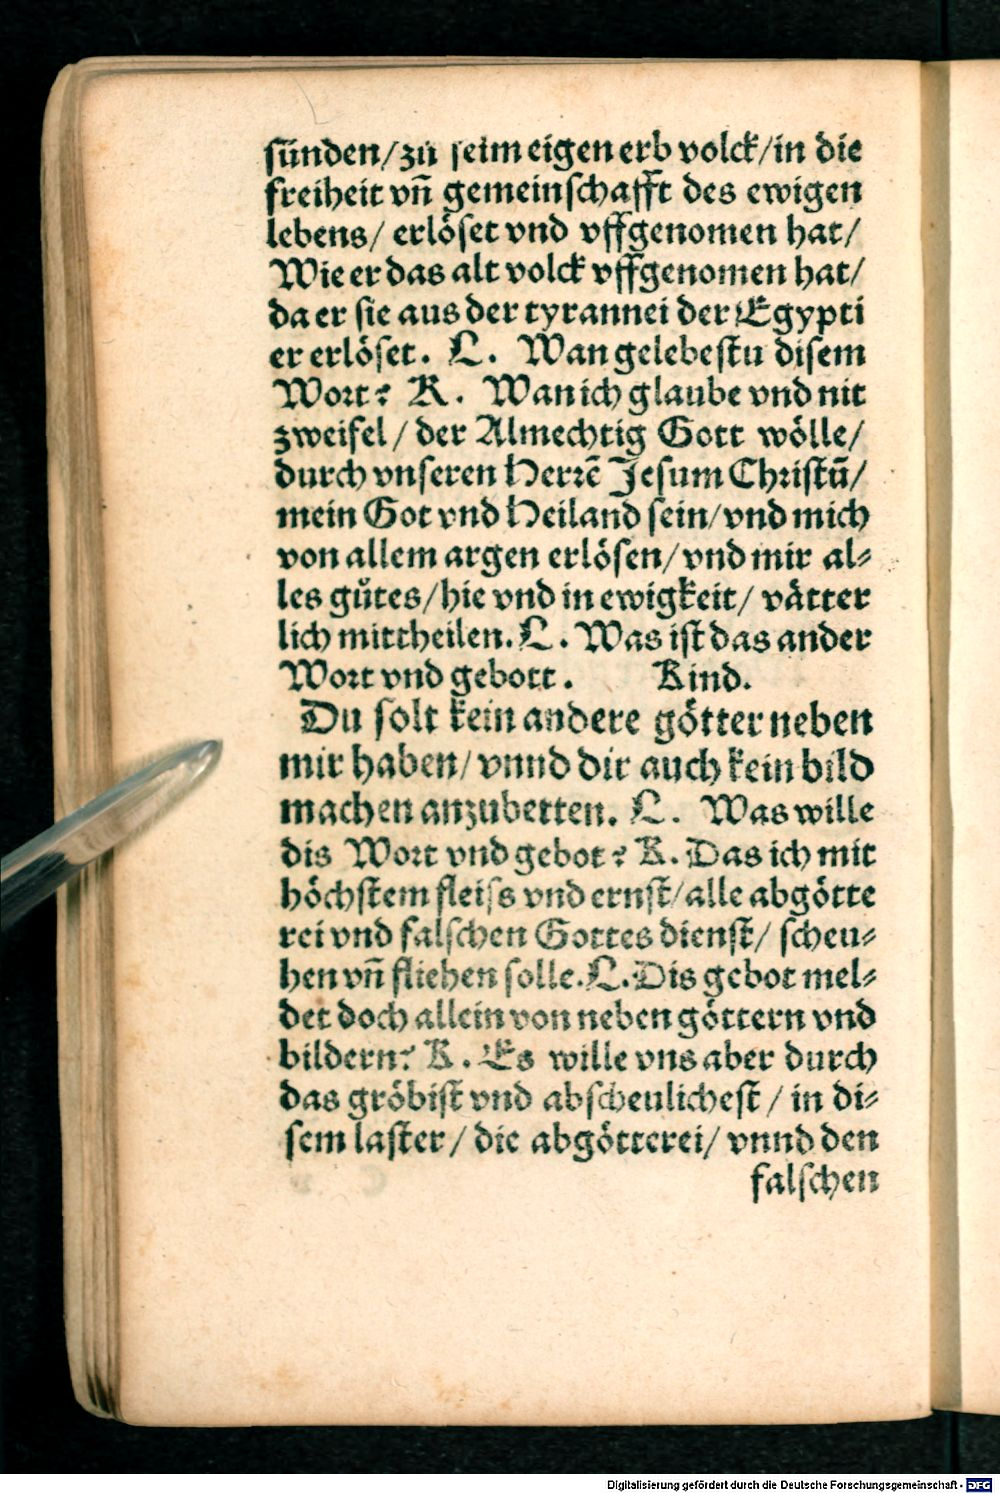 sünden/zu seim eigen erb volck/in die
freiheit vñ gemeinschafft des ewigen
lebens/ erlöset vnd vffgenomen hat/
Wie er das alt volck vffgenomen hat/
da er sie aus der tyrannei der Egypti
er erlöset. L. Wan gelebestu disem
Wort? K. Wan ich glaube vnd nit
zweifel/ der Almechtig Gott wölle/
durch vnseren Herrẽ Jesum Christũ/
mein Got vnd Heiland sein/vnd mich
von allem argen erlösen/vnd mir al⸗
les gůtes/hie vnd in ewigkeit/ vätter
lich mittheilen. L. Was ist das ander
Wort vnd gebott. Kind.
Du solt kein andere götter neben
mir haben/ vnnd dir auch kein bild
machen anzubetten. L. Was wille
dis Wort vnd gebot? K. Das ich mit
höchstem fleiss vnd ernst/alle abgötte
rei vnd falschen Gottes dienst/ scheu⸗
hen vñ fliehen solle. L. Dis gebot mel⸗
det doch allein von neben göttern vnd
bildern? K. Es wille vns aber durch
das gröbist vnd abscheulichest/ in di⸗
sem laster/ die abgötterei/ vnnd den
falschen
Digitalisierung gefördert durch die Deutsche Forschungsgemeinschaft - DFG